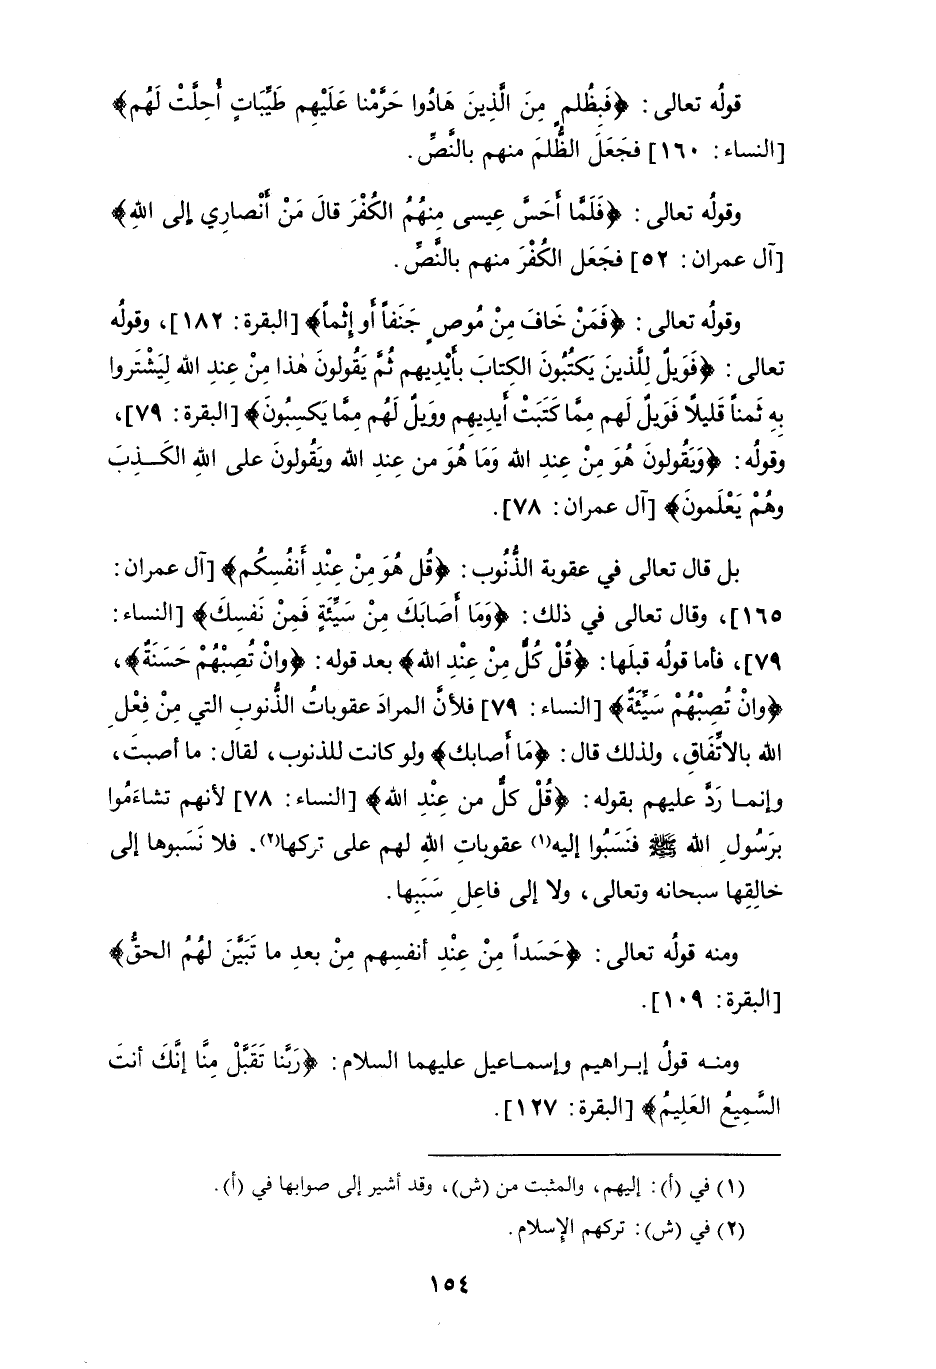 قولُه تعالى : ﴿فَبِظُلمٍ مِنَ الَّذِينَ هَادُوا حَرَّمْنا عَلَيْهِم طَيِّبَاتٍ أُحِلَّتْ لَهُم﴾
[النساء : ١٦٠] فجَعَلَ الظُّلمَ منهم بالنَّصِّ .
وقولُه تعالى : ﴿فَلَمَّا أَحَسَّ عِيسى مِنهُمُ الكُفْرَ قالَ مَنْ أَنْصارِي إلى اللهِ﴾
[آل عمران : ٥٢] فجَعَل الكُفْرَ منهم بالنَّصِّ .
وقولُه تعالى : ﴿فَمَنْ خَافَ مِنْ مُوصٍ جَنَفاً أو إثْماً﴾ [البقرة : ١٨٢] ، وقولُه
تعالى : ﴿فَوَيلٌ لِلَّذينَ يَكتُبُونَ الكِتابَ بأَيْدِيهم ثُمَّ يَقُولونَ هٰذا مِنْ عِندِ الله لِيَشْتَروا
بِهِ ثَمناً قَلِيلًا فَوَيلٌ لَهم مِمَّا كَتَبَتْ أَيدِيهم ووَيلٌ لَهُم مِمَّا يَكسِبُونَ﴾ [البقرة : ٧٩] ،
وقولُه : ﴿وَيَقُولونَ هُوَ مِنْ عِندِ الله وَمَا هُوَ من عِندِ الله ويَقُولونَ على اللهِ الكَـذِبَ
وهُمْ يَعْلَمونَ﴾ [آل عمران : ٧٨] .
بل قال تعالى في عقوبة الذُّنُوب : ﴿قُل هُوَ مِنْ عِنْدِ أَنفُسِكُم﴾ [آل عمران :
١٦٥] ، وقال تعالى في ذلك : ﴿وَمَا أَصَابَكَ مِنْ سَيِّئَةٍ فَمِنْ نَفسِكَ﴾ [النساء :
٧٩] ، فأما قولُه قبلَها : ﴿قُلْ كُلٌّ مِنْ عِنْدِ الله﴾ بعد قوله : ﴿وانْ تُصِبْهُمْ حَسَنَةٌ﴾ ،
﴿وانْ تُصِبْهُمْ سَيِّئَةٌ﴾ [النساء : ٧٩] فلأنَّ المرادَ عقوباتُ الذُّنوبِ التي مِنْ فِعْلِ
الله بالاتِّفَاقِ ، ولذلك قال : ﴿مَا أَصابك﴾ ولو كانت للذنوب ، لقال : ما أصبتَ ،
وإنمـا رَدَّ عليهم بقوله : ﴿قُلْ كلٌّ من عِنْدِ الله﴾ [النساء : ٧٨] لأنهم تشاءَمُوا
برَسُولِ الله ﷺ فنَسَبُوا إليه(١) عقوباتِ اللهِ لهم على تركها(٢) . فلا نَسَبوها إلى
خالِقِها سبحانه وتعالى ، ولا إلى فاعِلِ سَبَبِها .
ومنه قولُه تعالى : ﴿حَسَداً مِنْ عِنْدِ أنفسِهم مِنْ بعدِ ما تَبَيَّنَ لَهُمُ الحقُّ﴾
[البقرة : ١٠٩] .
ومنـه قولُ إبـراهيم وإسمـاعيل عليهما السلام : ﴿رَبَّنا تَقَبَّلْ مِنَّا إنَّكَ أنتَ
السَّمِيعُ العَلِيمُ﴾ [البقرة : ١٢٧] .
(١) في (أ) : إليهم ، والمثبت من (ش) ، وقد أشير إلى صوابها في (أ) .
(٢) في (ش) : تركهم الإسلام .
١٥٤